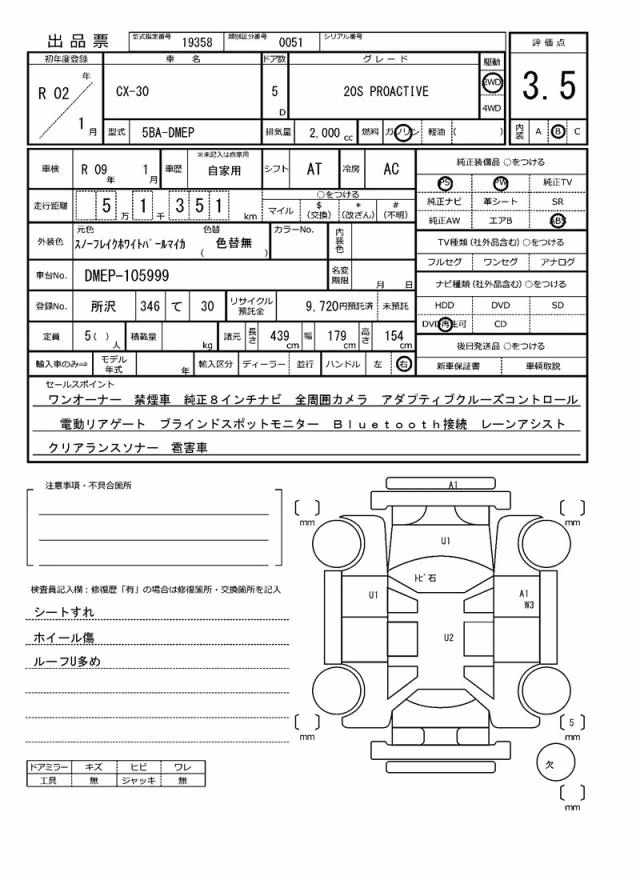 出品票 型式指定番号 19358 類別区分番号 0051 シリアル番号
初年度登録 車名 ドア数 グレード 駆動 評価点
R 02 年 1 月 CX-30 5 D 20S PROACTIVE 2WD 4WD 3.5
型式 5BA-DMEP 排気量 2,000 cc 燃料 ガソリン 軽油 ( ) 内装 A B C
車検 R 09 年 1 月 車歴 ※未記入は自家用 自家用 シフト AT 冷房 AC 純正装備品 ○をつける
PS PW 純正TV
走行距離 5 万 1 千 351 km ○をつける 純正ナビ 革シート SR
マイル $ (交換) * (改ざん) # (不明) 純正AW エアB ABS
外装色 元色 スノーフレイクホワイトパールマイカ 色替 ( 色替無 ) カラーNo. 内装色 TV種類 (社外品含む) ○をつける
フルセグ ワンセグ アナログ
車台No. DMEP-105999 名変期限 月 日 ナビ種類 (社外品含む) ○をつける
登録No. 所沢 346 て 30 リサイクル預託金 9,720円預託済 未預託 HDD DVD SD
DVD再生可 CD
定員 5( ) 人 積載量 kg 諸元 長さ 439 cm 幅 179 cm 高さ 154 cm 後日発送品 ○をつける
輸入車のみ⇨ モデル年式 年 輸入区分 ディーラー 並行 ハンドル 左 右 新車保証書 車輌取説
セールスポイント
ワンオーナー 禁煙車 純正8インチナビ 全周囲カメラ アダプティブクルーズコントロール
電動リアゲート ブラインドスポットモニター Bluetooth接続 レーンアシスト
クリアランスソナー 雹害車
注意事項・不具合箇所
検査員記入欄:修復歴「有」の場合は修復箇所・交換箇所を記入
シートすれ
ホイール傷
ルーフU多め
ドアミラー キズ ヒビ ワレ
工具 無 ジャッキ 無
A1
[ ] mm [ ] mm
U1
トビ石
U1 A1
W3
U2
[ ] mm [ 5 ] mm
欠
[ ] mm